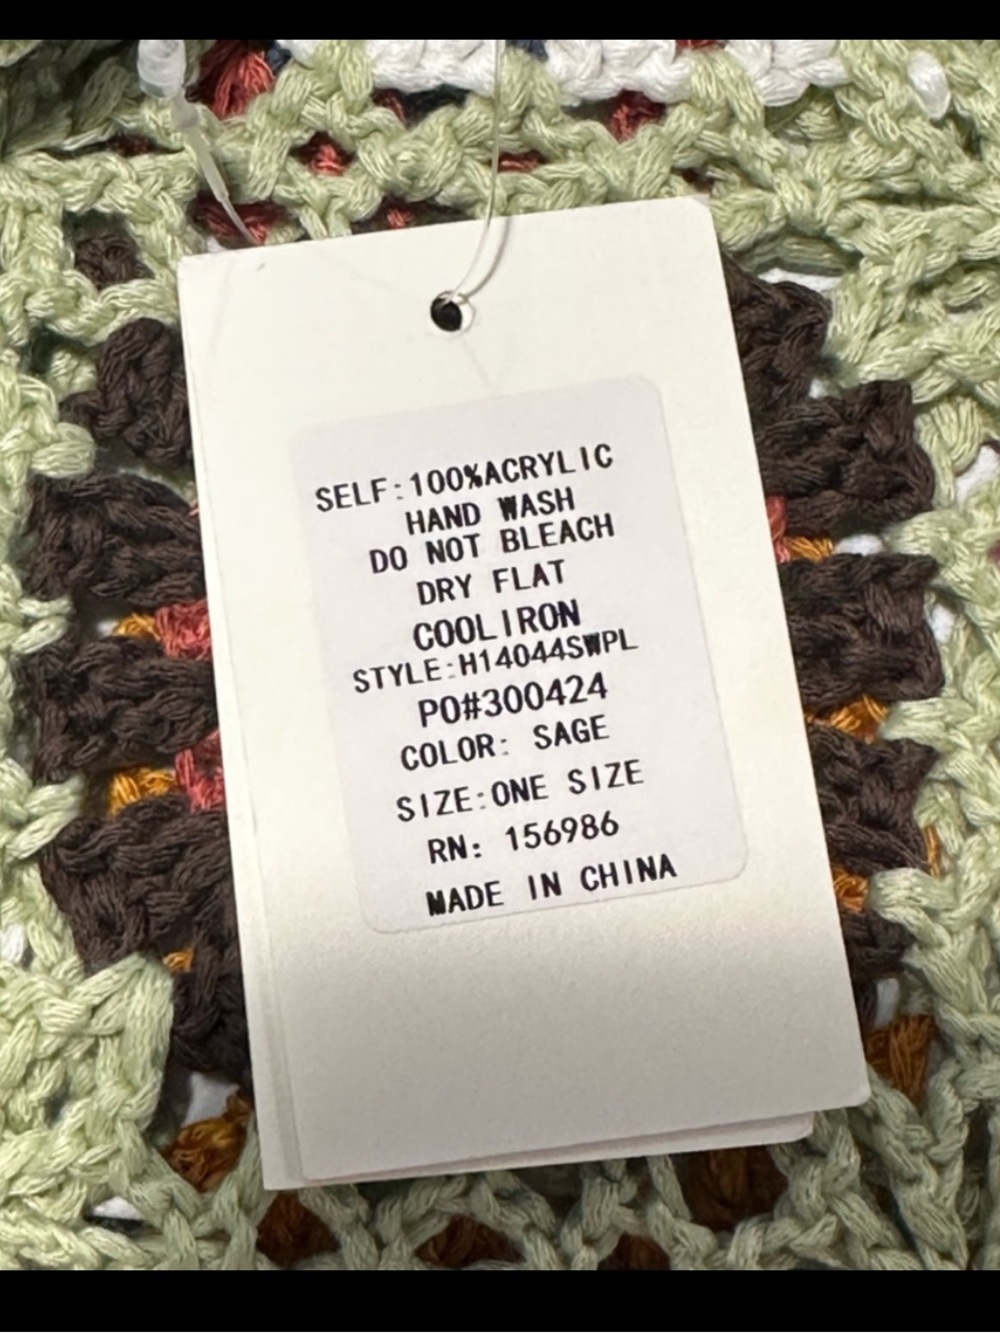 SELF:100%ACRYLIC
HAND WASH
DO NOT BLEACH
DRY FLAT
COOL IRON
STYLE:H14044SWPL
PO#300424
COLOR: SAGE
SIZE:ONE SIZE
RN: 156986
MADE IN CHINA